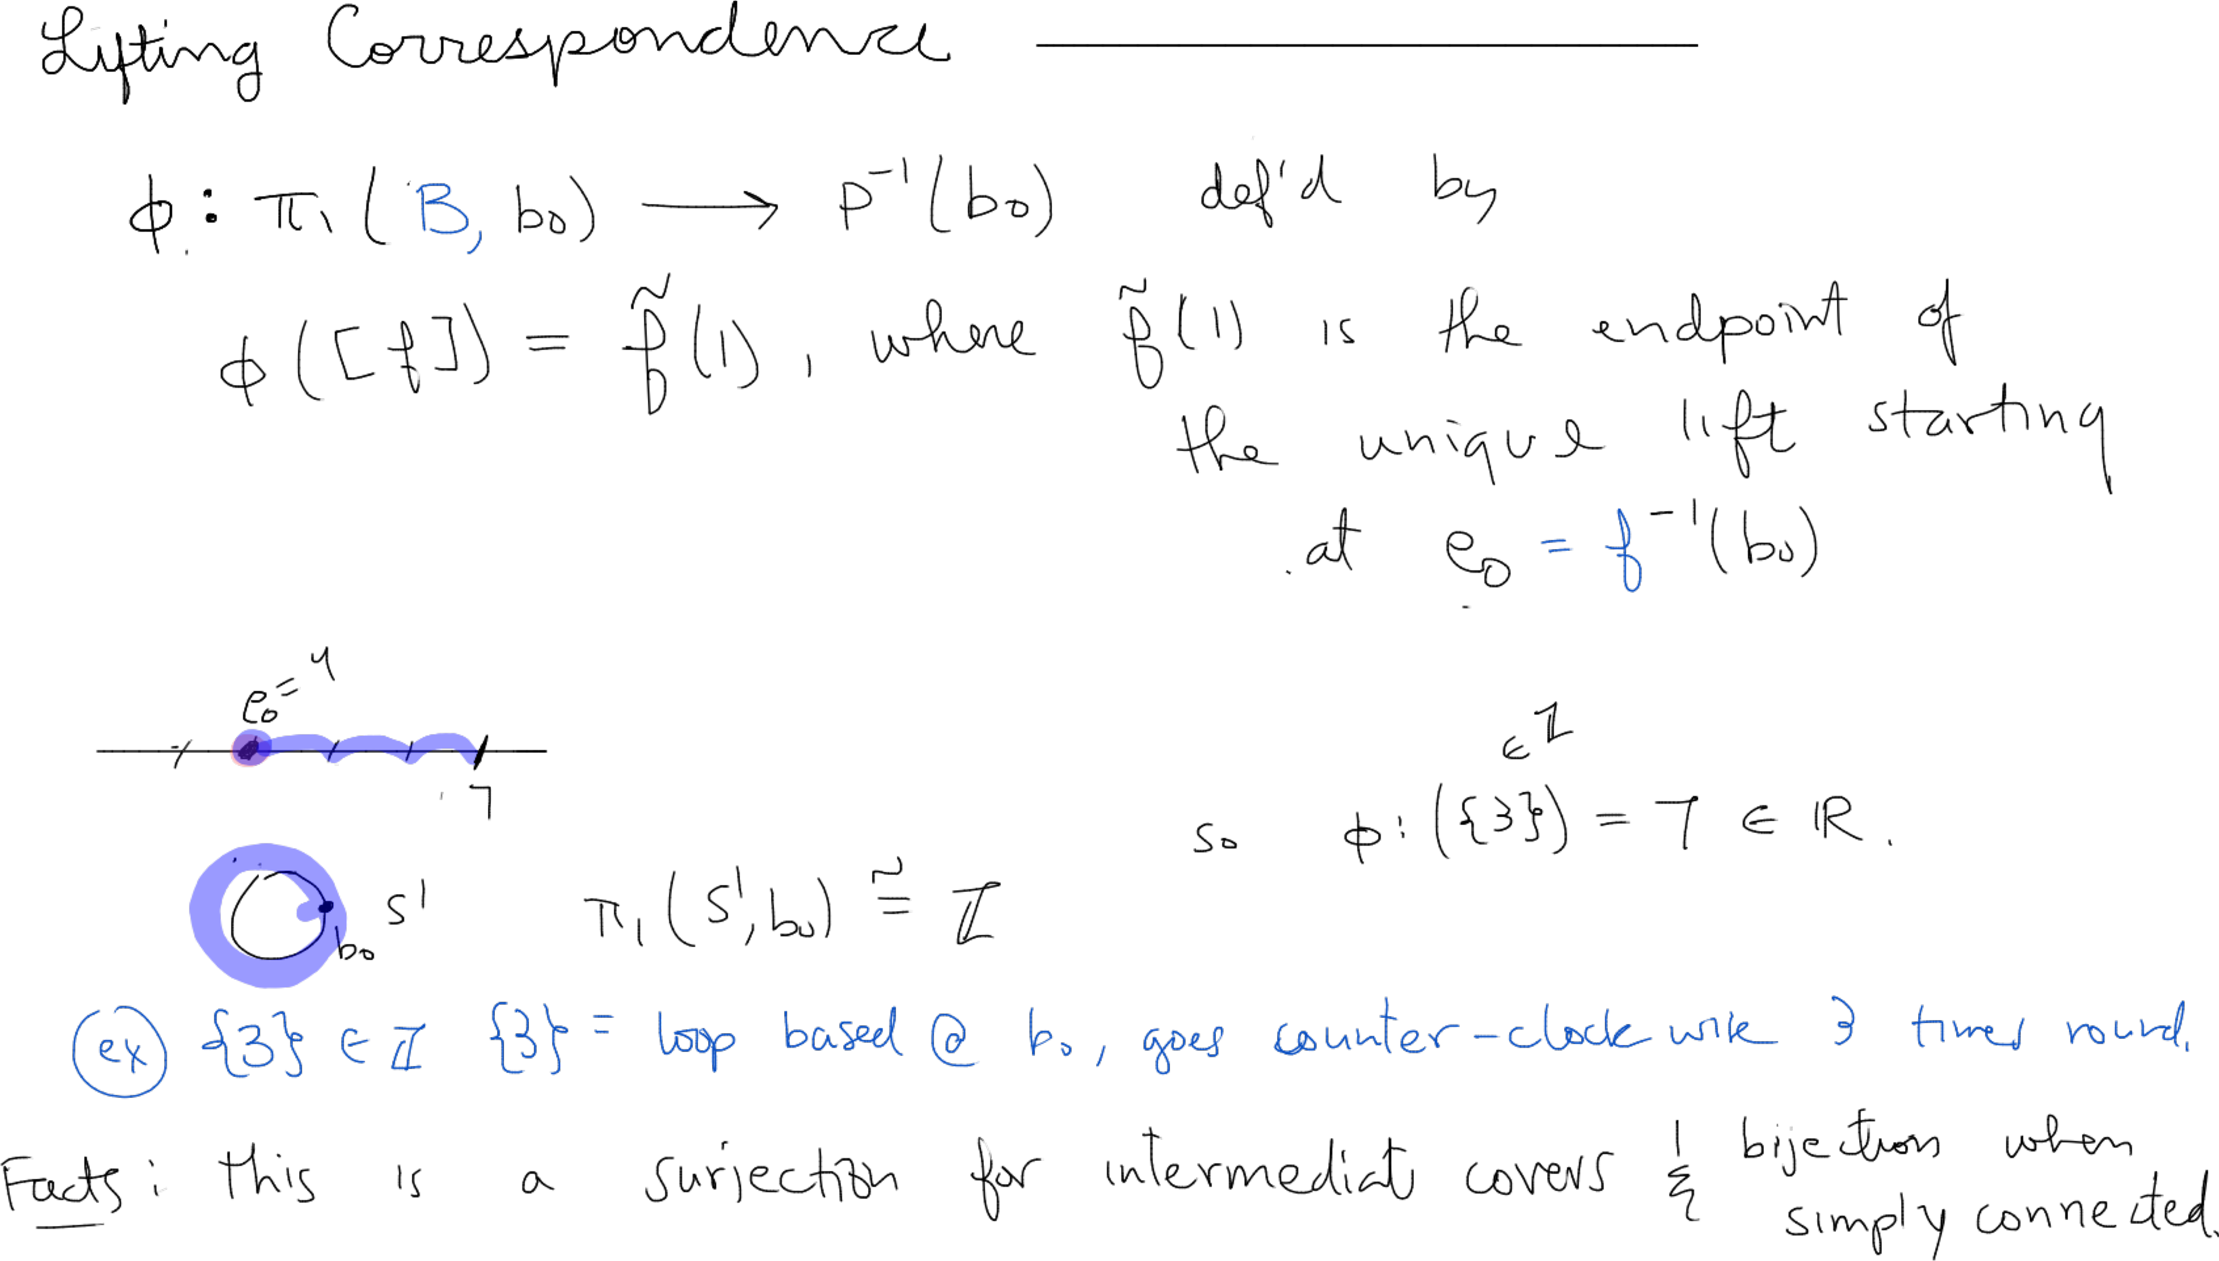 Lifting Correspondence
ϕ: π₁(B, b₀) ⟶ p⁻¹(b₀) def'd by
ϕ([f]) = f̃(1), where f̃(1) is the endpoint of
the unique lift starting
at e₀ = f⁻¹(b₀)
e₀ = 4
7
∈ ℤ
so ϕ: ({3}) = 7 ∈ ℝ.
b₀ S¹ π₁(S¹, b₀) ≅ ℤ
ex {3} ∈ ℤ {3} = loop based @ b₀, goes counter-clockwise 3 times round.
Facts: this is a surjection for intermediat covers & bijection when
simply connected.